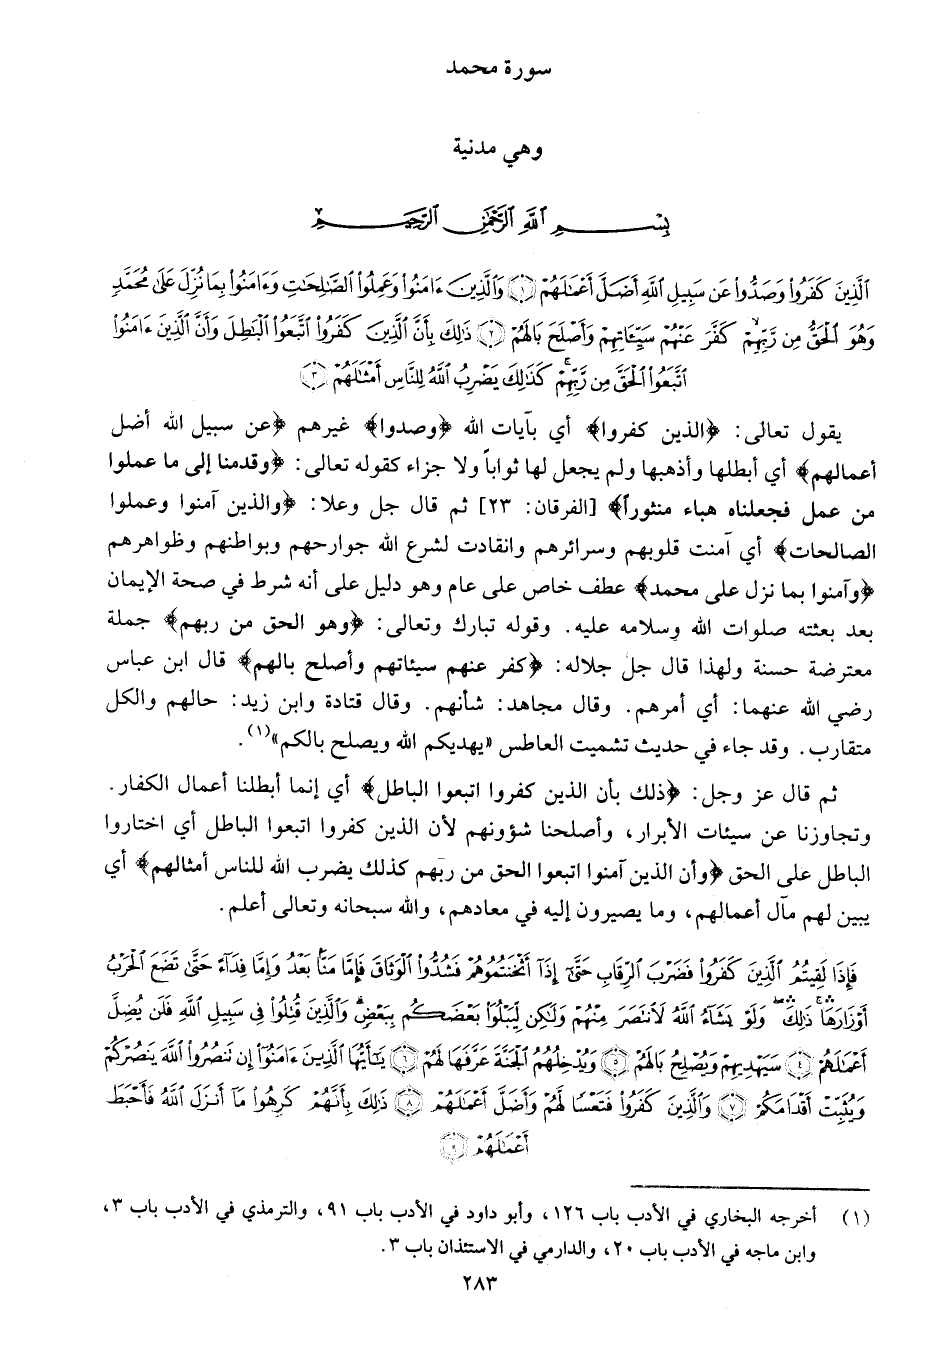 سورة محمد
وهي مدنية
بِسْمِ ٱللَّهِ ٱلرَّحْمَٰنِ ٱلرَّحِيمِ
ٱلَّذِينَ كَفَرُوا۟ وَصَدُّوا۟ عَن سَبِيلِ ٱللَّهِ أَضَلَّ أَعْمَٰلَهُمْ ﴿١﴾ وَٱلَّذِينَ ءَامَنُوا۟ وَعَمِلُوا۟ ٱلصَّٰلِحَٰتِ وَءَامَنُوا۟ بِمَا نُزِّلَ عَلَىٰ مُحَمَّدٍ
وَهُوَ ٱلْحَقُّ مِن رَّبِّهِمْ ۙ كَفَّرَ عَنْهُمْ سَيِّـَٔاتِهِمْ وَأَصْلَحَ بَالَهُمْ ﴿٢﴾ ذَٰلِكَ بِأَنَّ ٱلَّذِينَ كَفَرُوا۟ ٱتَّبَعُوا۟ ٱلْبَٰطِلَ وَأَنَّ ٱلَّذِينَ ءَامَنُوا۟
ٱتَّبَعُوا۟ ٱلْحَقَّ مِن رَّبِّهِمْ ۚ كَذَٰلِكَ يَضْرِبُ ٱللَّهُ لِلنَّاسِ أَمْثَٰلَهُمْ ﴿٣﴾
يقول تعالى: ﴿الذين كفروا﴾ أي بآيات الله ﴿وصدوا﴾ غيرهم ﴿عن سبيل الله أضل
أعمالهم﴾ أي أبطلها وأذهبها ولم يجعل لها ثواباً ولا جزاء كقوله تعالى: ﴿وقدمنا إلى ما عملوا
من عمل فجعلناه هباء منثوراً﴾ [الفرقان: ٢٣] ثم قال جل وعلا: ﴿والذين آمنوا وعملوا
الصالحات﴾ أي آمنت قلوبهم وسرائرهم وانقادت لشرع الله جوارحهم وبواطنهم وظواهرهم
﴿وآمنوا بما نزل على محمد﴾ عطف خاص على عام وهو دليل على أنه شرط في صحة الإيمان
بعد بعثته صلوات الله وسلامه عليه. وقوله تبارك وتعالى: ﴿وهو الحق من ربهم﴾ جملة
معترضة حسنة ولهذا قال جل جلاله: ﴿كفر عنهم سيئاتهم وأصلح بالهم﴾ قال ابن عباس
رضي الله عنهما: أي أمرهم. وقال مجاهد: شأنهم. وقال قتادة وابن زيد: حالهم والكل
متقارب. وقد جاء في حديث تشميت العاطس «يهديكم الله ويصلح بالكم»(١).
ثم قال عز وجل: ﴿ذلك بأن الذين كفروا اتبعوا الباطل﴾ أي إنما أبطلنا أعمال الكفار.
وتجاوزنا عن سيئات الأبرار، وأصلحنا شؤونهم لأن الذين كفروا اتبعوا الباطل أي اختاروا
الباطل على الحق ﴿وأن الذين آمنوا اتبعوا الحق من ربهم كذلك يضرب الله للناس أمثالهم﴾ أي
يبين لهم مآل أعمالهم، وما يصيرون إليه في معادهم، والله سبحانه وتعالى أعلم.
فَإِذَا لَقِيتُمُ ٱلَّذِينَ كَفَرُوا۟ فَضَرْبَ ٱلرِّقَابِ حَتَّىٰٓ إِذَآ أَثْخَنتُمُوهُمْ فَشُدُّوا۟ ٱلْوَثَاقَ فَإِمَّا مَنًّۢا بَعْدُ وَإِمَّا فِدَآءً حَتَّىٰ تَضَعَ ٱلْحَرْبُ
أَوْزَارَهَا ۚ ذَٰلِكَ ۖ وَلَوْ يَشَآءُ ٱللَّهُ لَٱنتَصَرَ مِنْهُمْ وَلَٰكِن لِّيَبْلُوَا۟ بَعْضَكُم بِبَعْضٍ ۗ وَٱلَّذِينَ قُتِلُوا۟ فِى سَبِيلِ ٱللَّهِ فَلَن يُضِلَّ
أَعْمَٰلَهُمْ ﴿٤﴾ سَيَهْدِيهِمْ وَيُصْلِحُ بَالَهُمْ ﴿٥﴾ وَيُدْخِلُهُمُ ٱلْجَنَّةَ عَرَّفَهَا لَهُمْ ﴿٦﴾ يَٰٓأَيُّهَا ٱلَّذِينَ ءَامَنُوٓا۟ إِن تَنصُرُوا۟ ٱللَّهَ يَنصُرْكُمْ
وَيُثَبِّتْ أَقْدَامَكُمْ ﴿٧﴾ وَٱلَّذِينَ كَفَرُوا۟ فَتَعْسًا لَّهُمْ وَأَضَلَّ أَعْمَٰلَهُمْ ﴿٨﴾ ذَٰلِكَ بِأَنَّهُمْ كَرِهُوا۟ مَآ أَنزَلَ ٱللَّهُ فَأَحْبَطَ
أَعْمَٰلَهُمْ ﴿٩﴾
(١) أخرجه البخاري في الأدب باب ١٢٦، وأبو داود في الأدب باب ٩١، والترمذي في الأدب باب ٣،
وابن ماجه في الأدب باب ٢٠، والدارمي في الاستئذان باب ٣.
٢٨٣